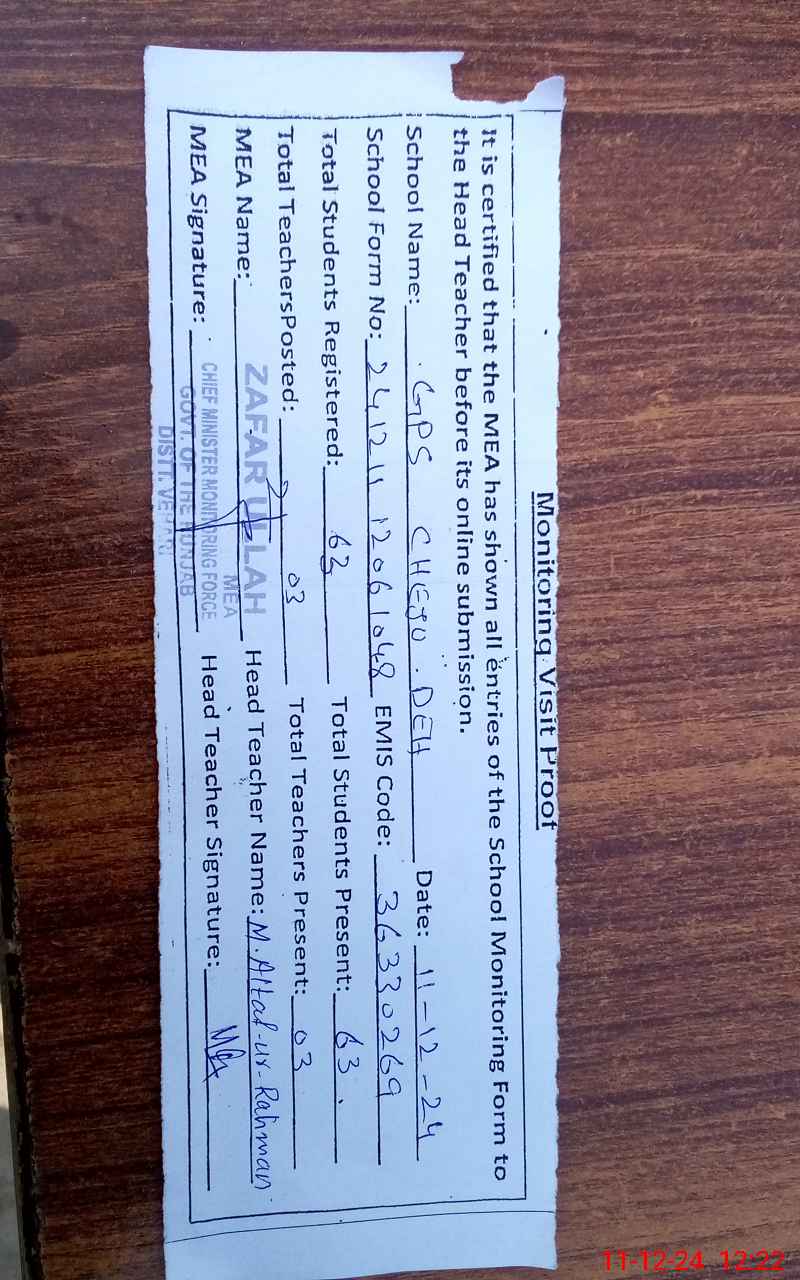 Monitoring Visit Proof
It is certified that the MEA has shown all entries of the School Monitoring Form to
the Head Teacher before its online submission.
School Name: GPS CHEJO. DEH Date: 11-12-24
School Form No: 241211 12061048 EMIS Code: 36330269
Total Students Registered: 62 Total Students Present: 63.
Total TeachersPosted: 03 Total Teachers Present: 03
MEA Name: ZAFAR ULLAH Head Teacher Name: M. Altaf-ur-Rahman
MEA
MEA Signature: CHIEF MINISTER MONITORING FORCE Head Teacher Signature:
GOVT. OF THE PUNJAB
DISTT. VEHARI
11-12-24 12:22